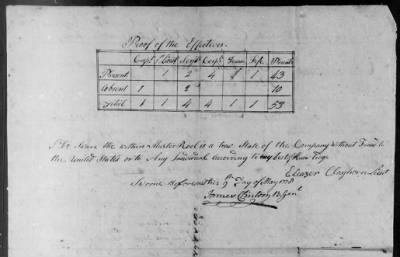 Proof of the Effectives
Capt. Lieut Serjts Corpl Drum Fife Privats
Present 1 2 4 1 1 43
Absent 1 2 10
Total 1 1 4 4 1 1 53
I Do Swear the within Muster Roll is a true State of the Company without Fraud to
the United States or to Any Individual according to my best Knowledge
Eleazer Claghorn Lieut
Sworne before me this 9th Day of May 1778
James Clinton B. Genl